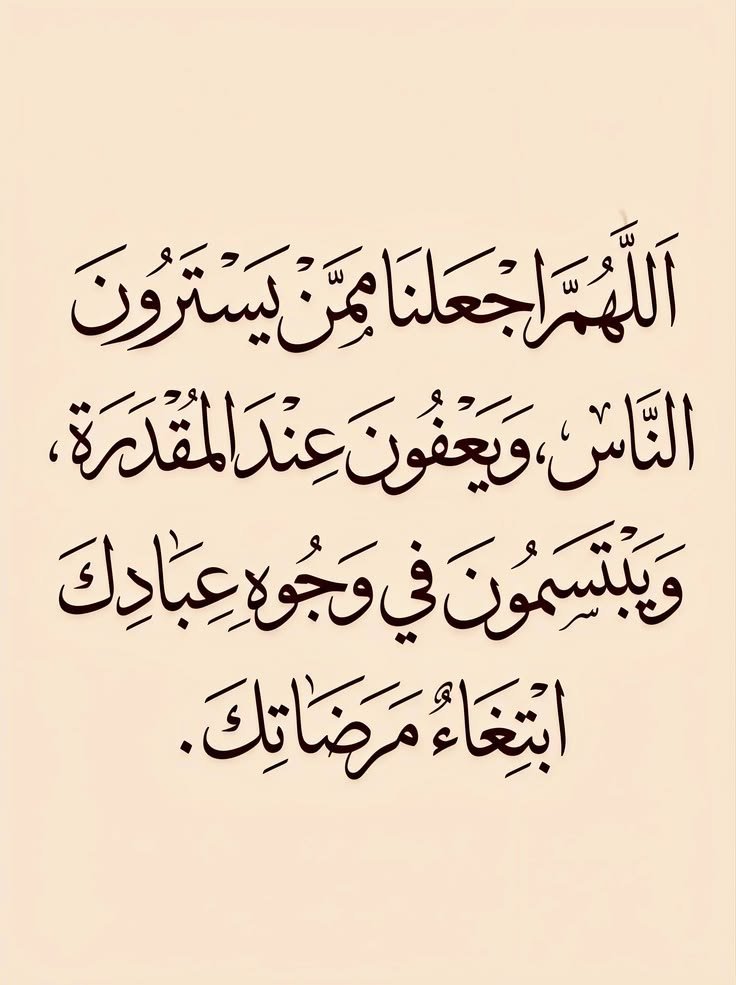 اَللَّهُمَّ اجْعَلنَا مِمَّنْ يَسْتَرُونَ
النَّاس، وَيَعْفُونَ عِنْدَ المُقْدَرَة،
وَيَبْتَسَمُونَ في وَجُوهِ عِبَادِكَ
ابْتِغَاءٌ مَرَضَاتِكَ.